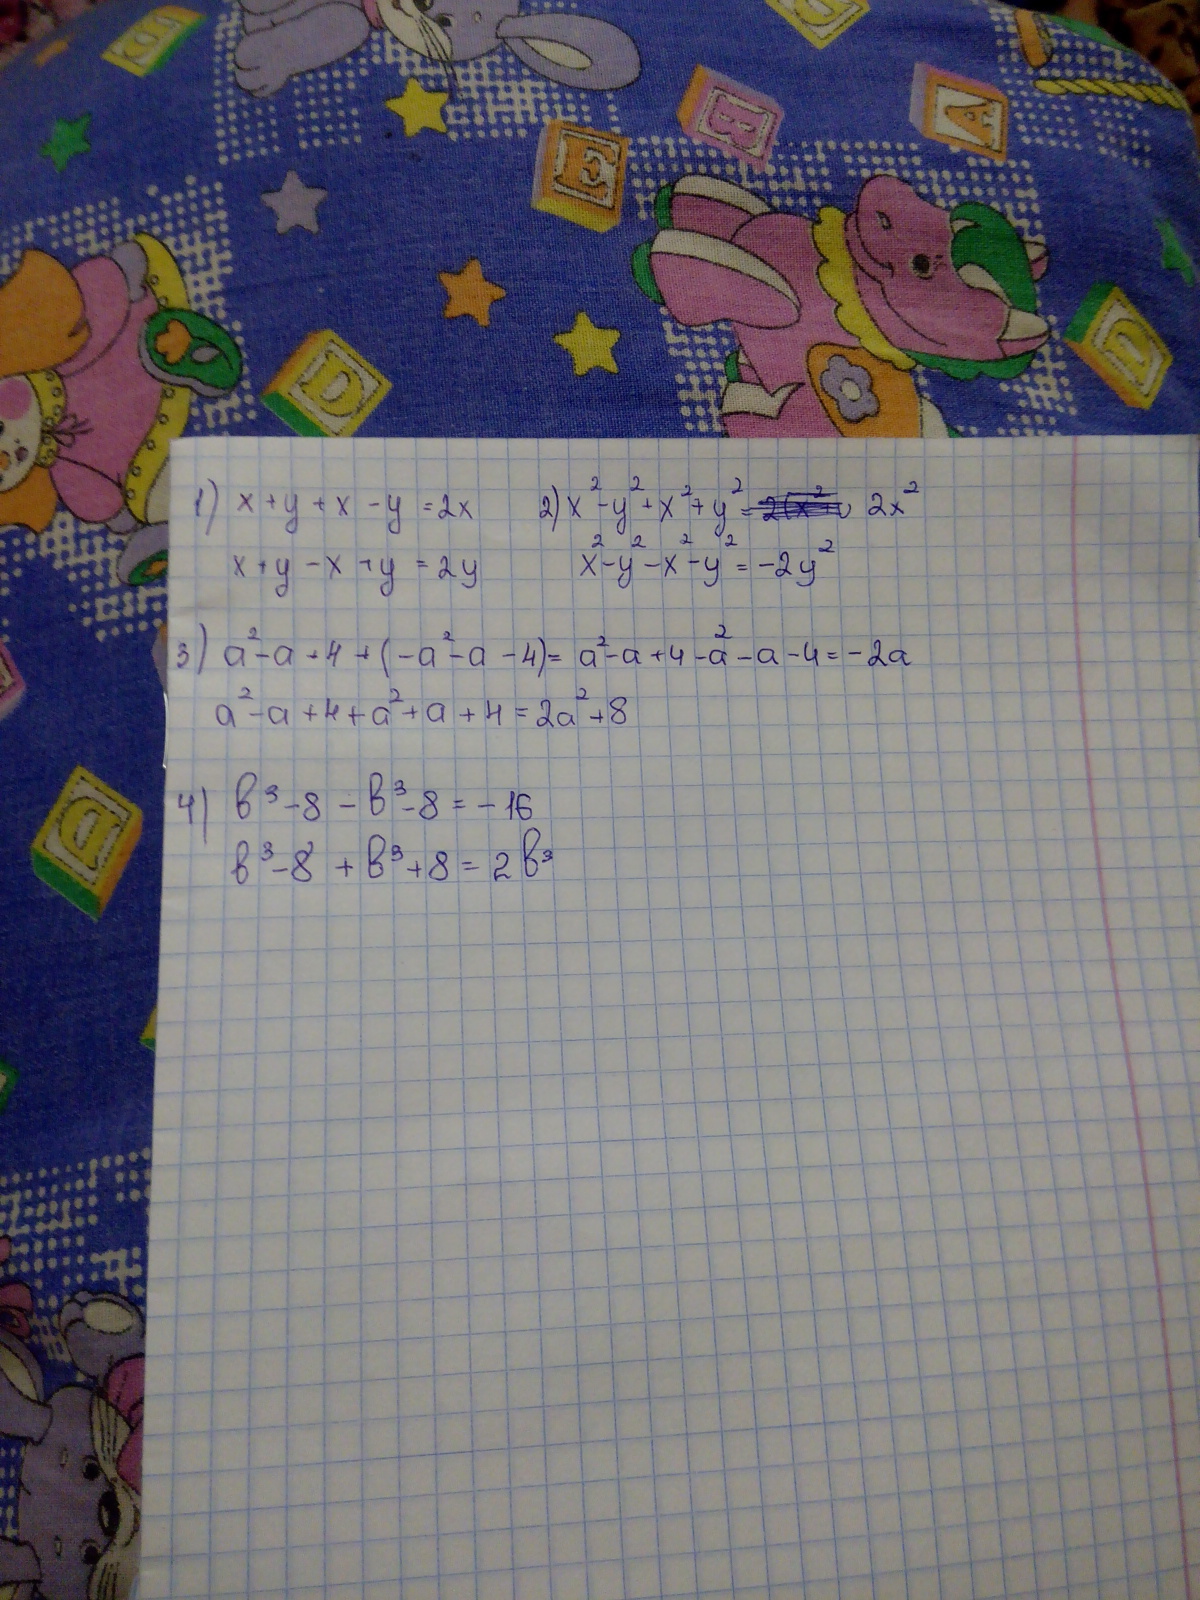 D
B
A
E
D
D
1) x+y+x-y=2x 2) x²-y²+x²+y²= 2x²
x+y-x+y=2y x²-y²-x²-y²=-2y²
3) a²-a+4+(-a²-a-4)= a²-a+4-a²-a-4=-2a
a²-a+4+a²+a+4=2a²+8
4) b³-8-b³-8=-16
b³-8+b³+8=2b³
D